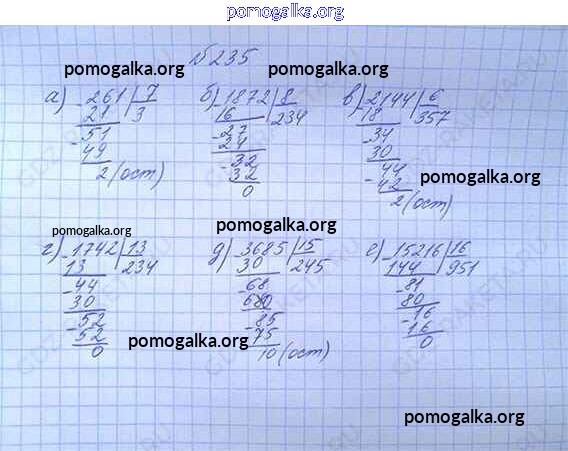 pomogalka.org
№235
pomogalka.org pomogalka.org
а) -261 | 7 б) -1872 | 8 в) -2144 | 6
21 3 16 234 18 357
-51 -27 -34
49 24 30
2 (ост) -32 44
32 -42
0 2 (ост)
pomogalka.org
pomogalka.org pomogalka.org
г) -1742 | 13 д) -3685 | 15 е) -15216 | 16
13 234 30 245 144 951
-44 68 -81
30 680 80
-52 -85 -16
52 75 16
0 10 (ост) 0
pomogalka.org
pomogalka.org